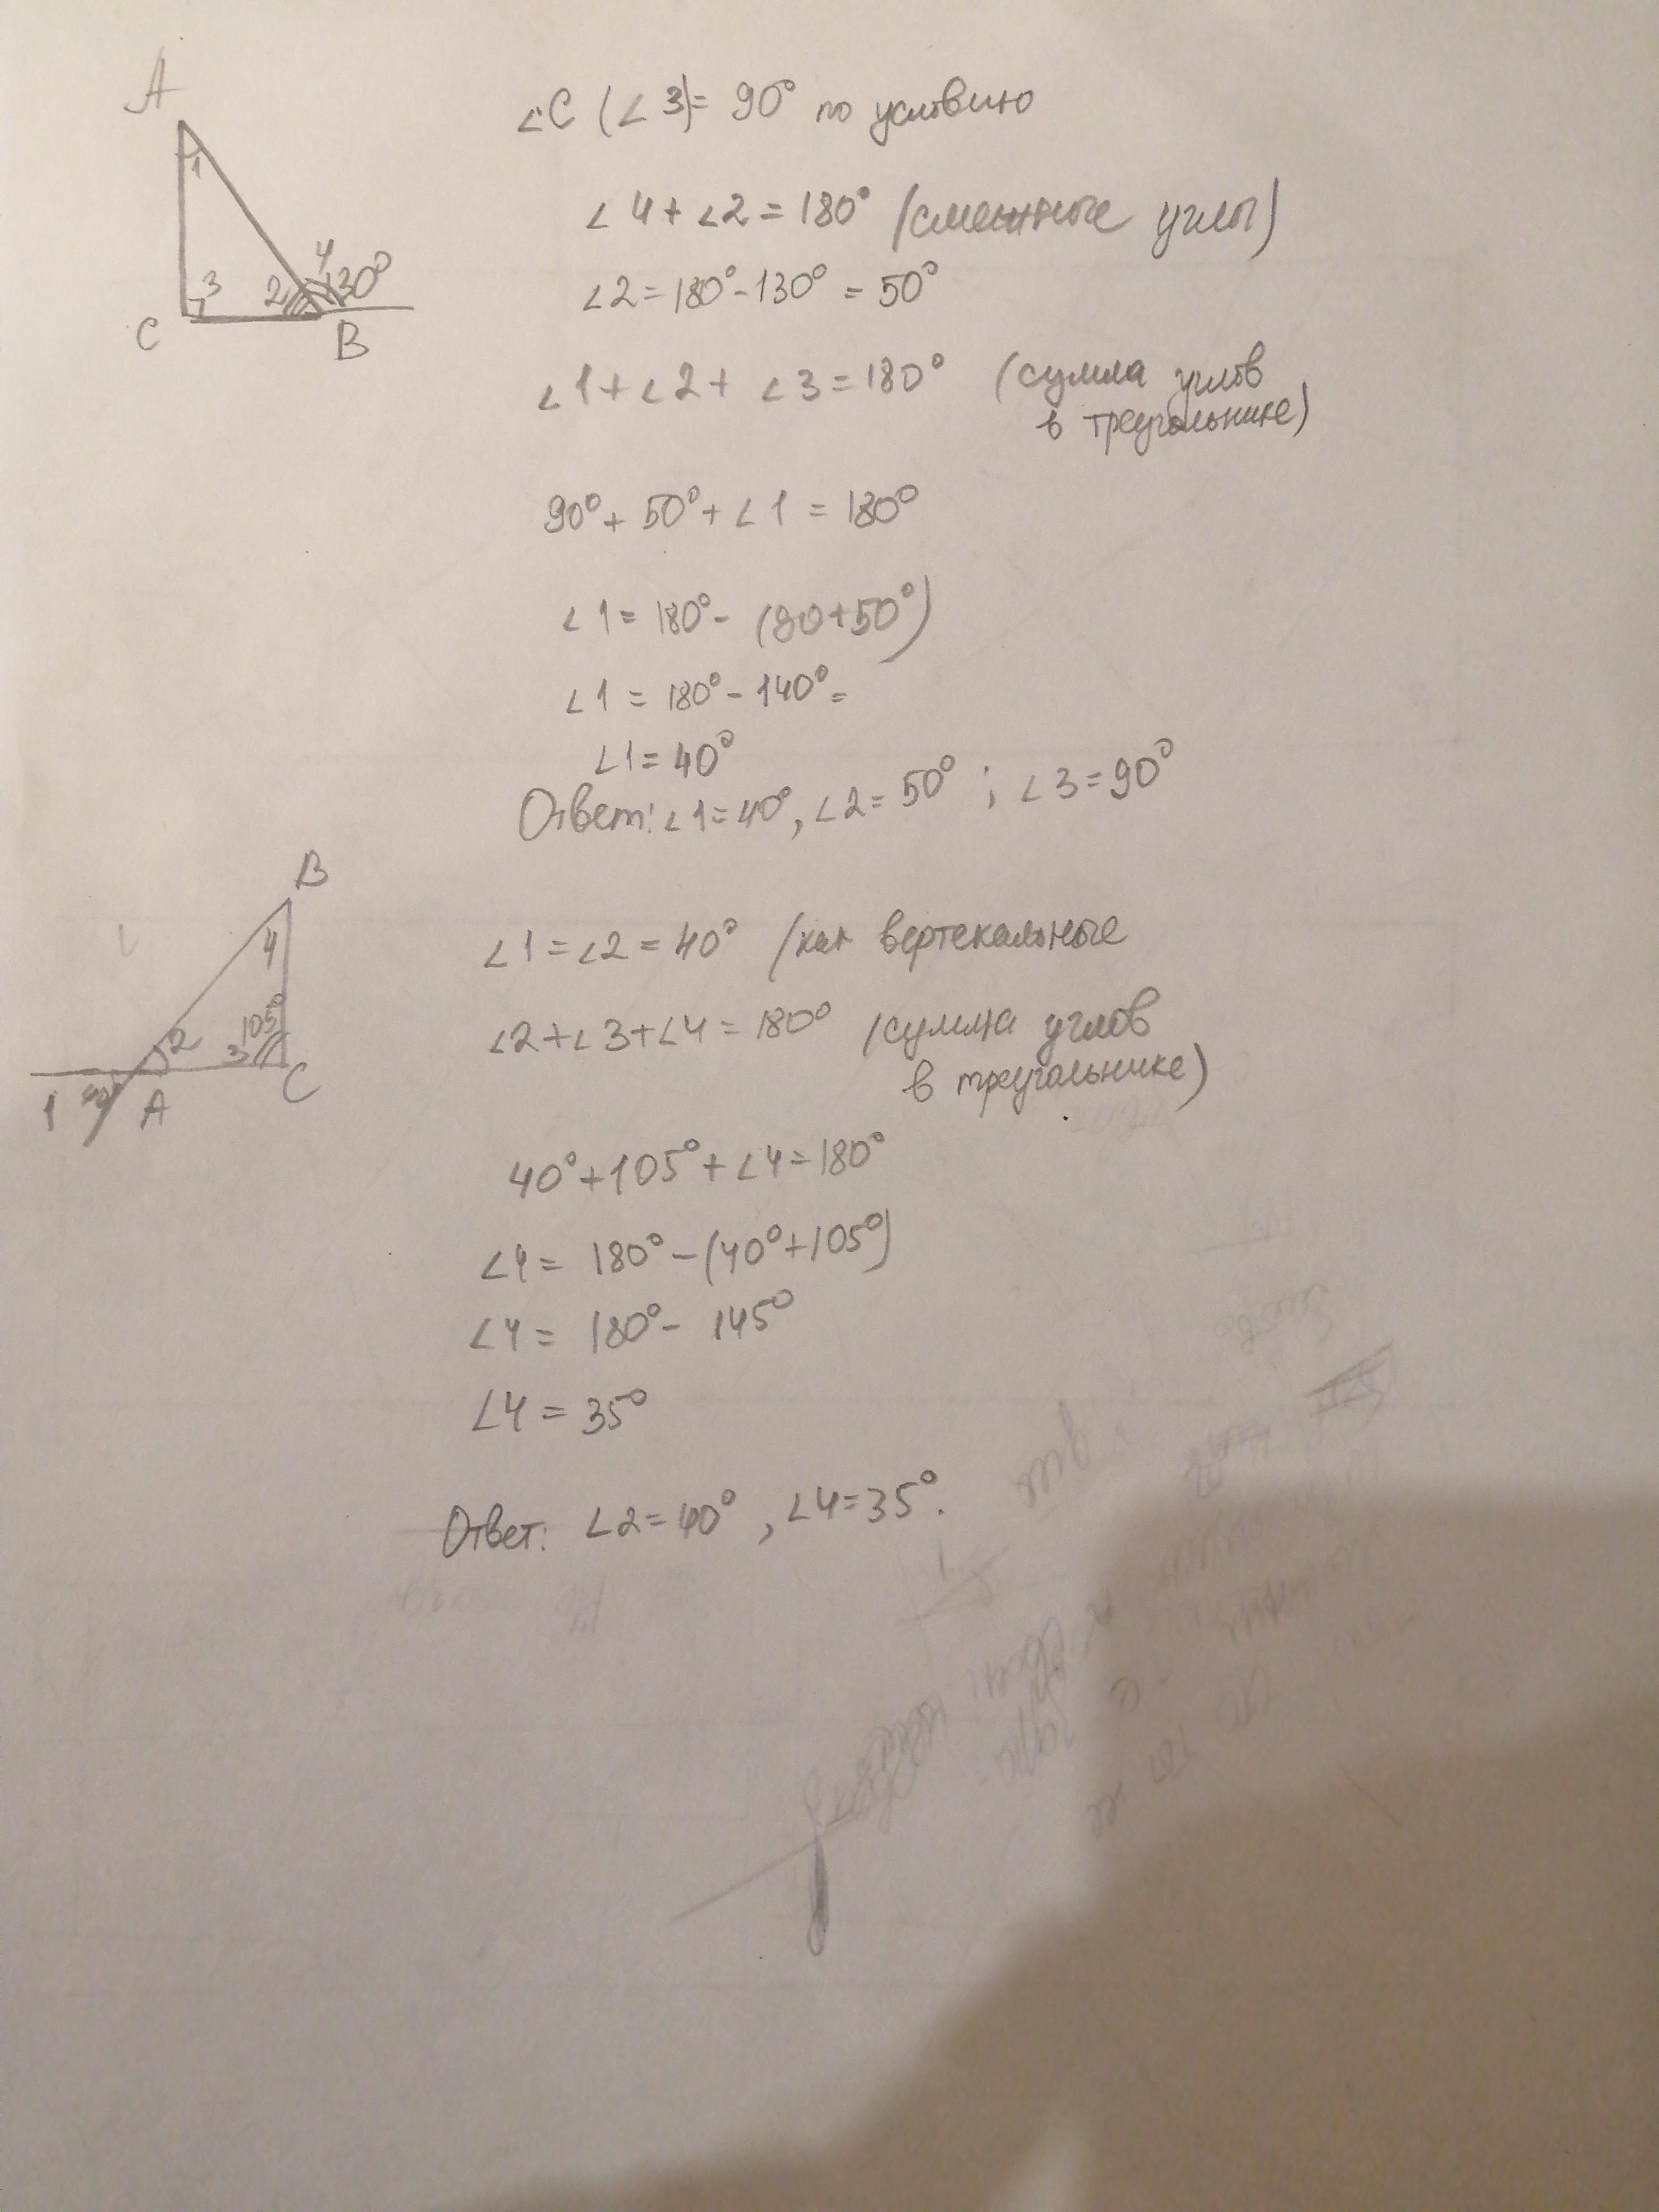 A
1
3
2
4
130°
C
B
∠C (∠3)= 90° по условию
∠4+∠2=180° (смежные углы)
∠2=180°-130° = 50°
∠1+∠2+ ∠3=180° (сумма углов
в треугольнике)
90°+50°+∠1=180°
∠1=180°-(90+50°)
∠1=180°-140°=
∠1=40°
Ответ: ∠1=40°, ∠2=50° ; ∠3=90°
B
4
105°
2
3
C
1
40°
A
∠1=∠2=40° (как вертекальные
∠2+∠3+∠4=180° (сумма углов
в треугольнике)
40°+105°+∠4=180°
∠4= 180°-(40°+105°)
∠4= 180°- 145°
∠4=35°
Ответ: ∠2=40° , ∠4=35°.